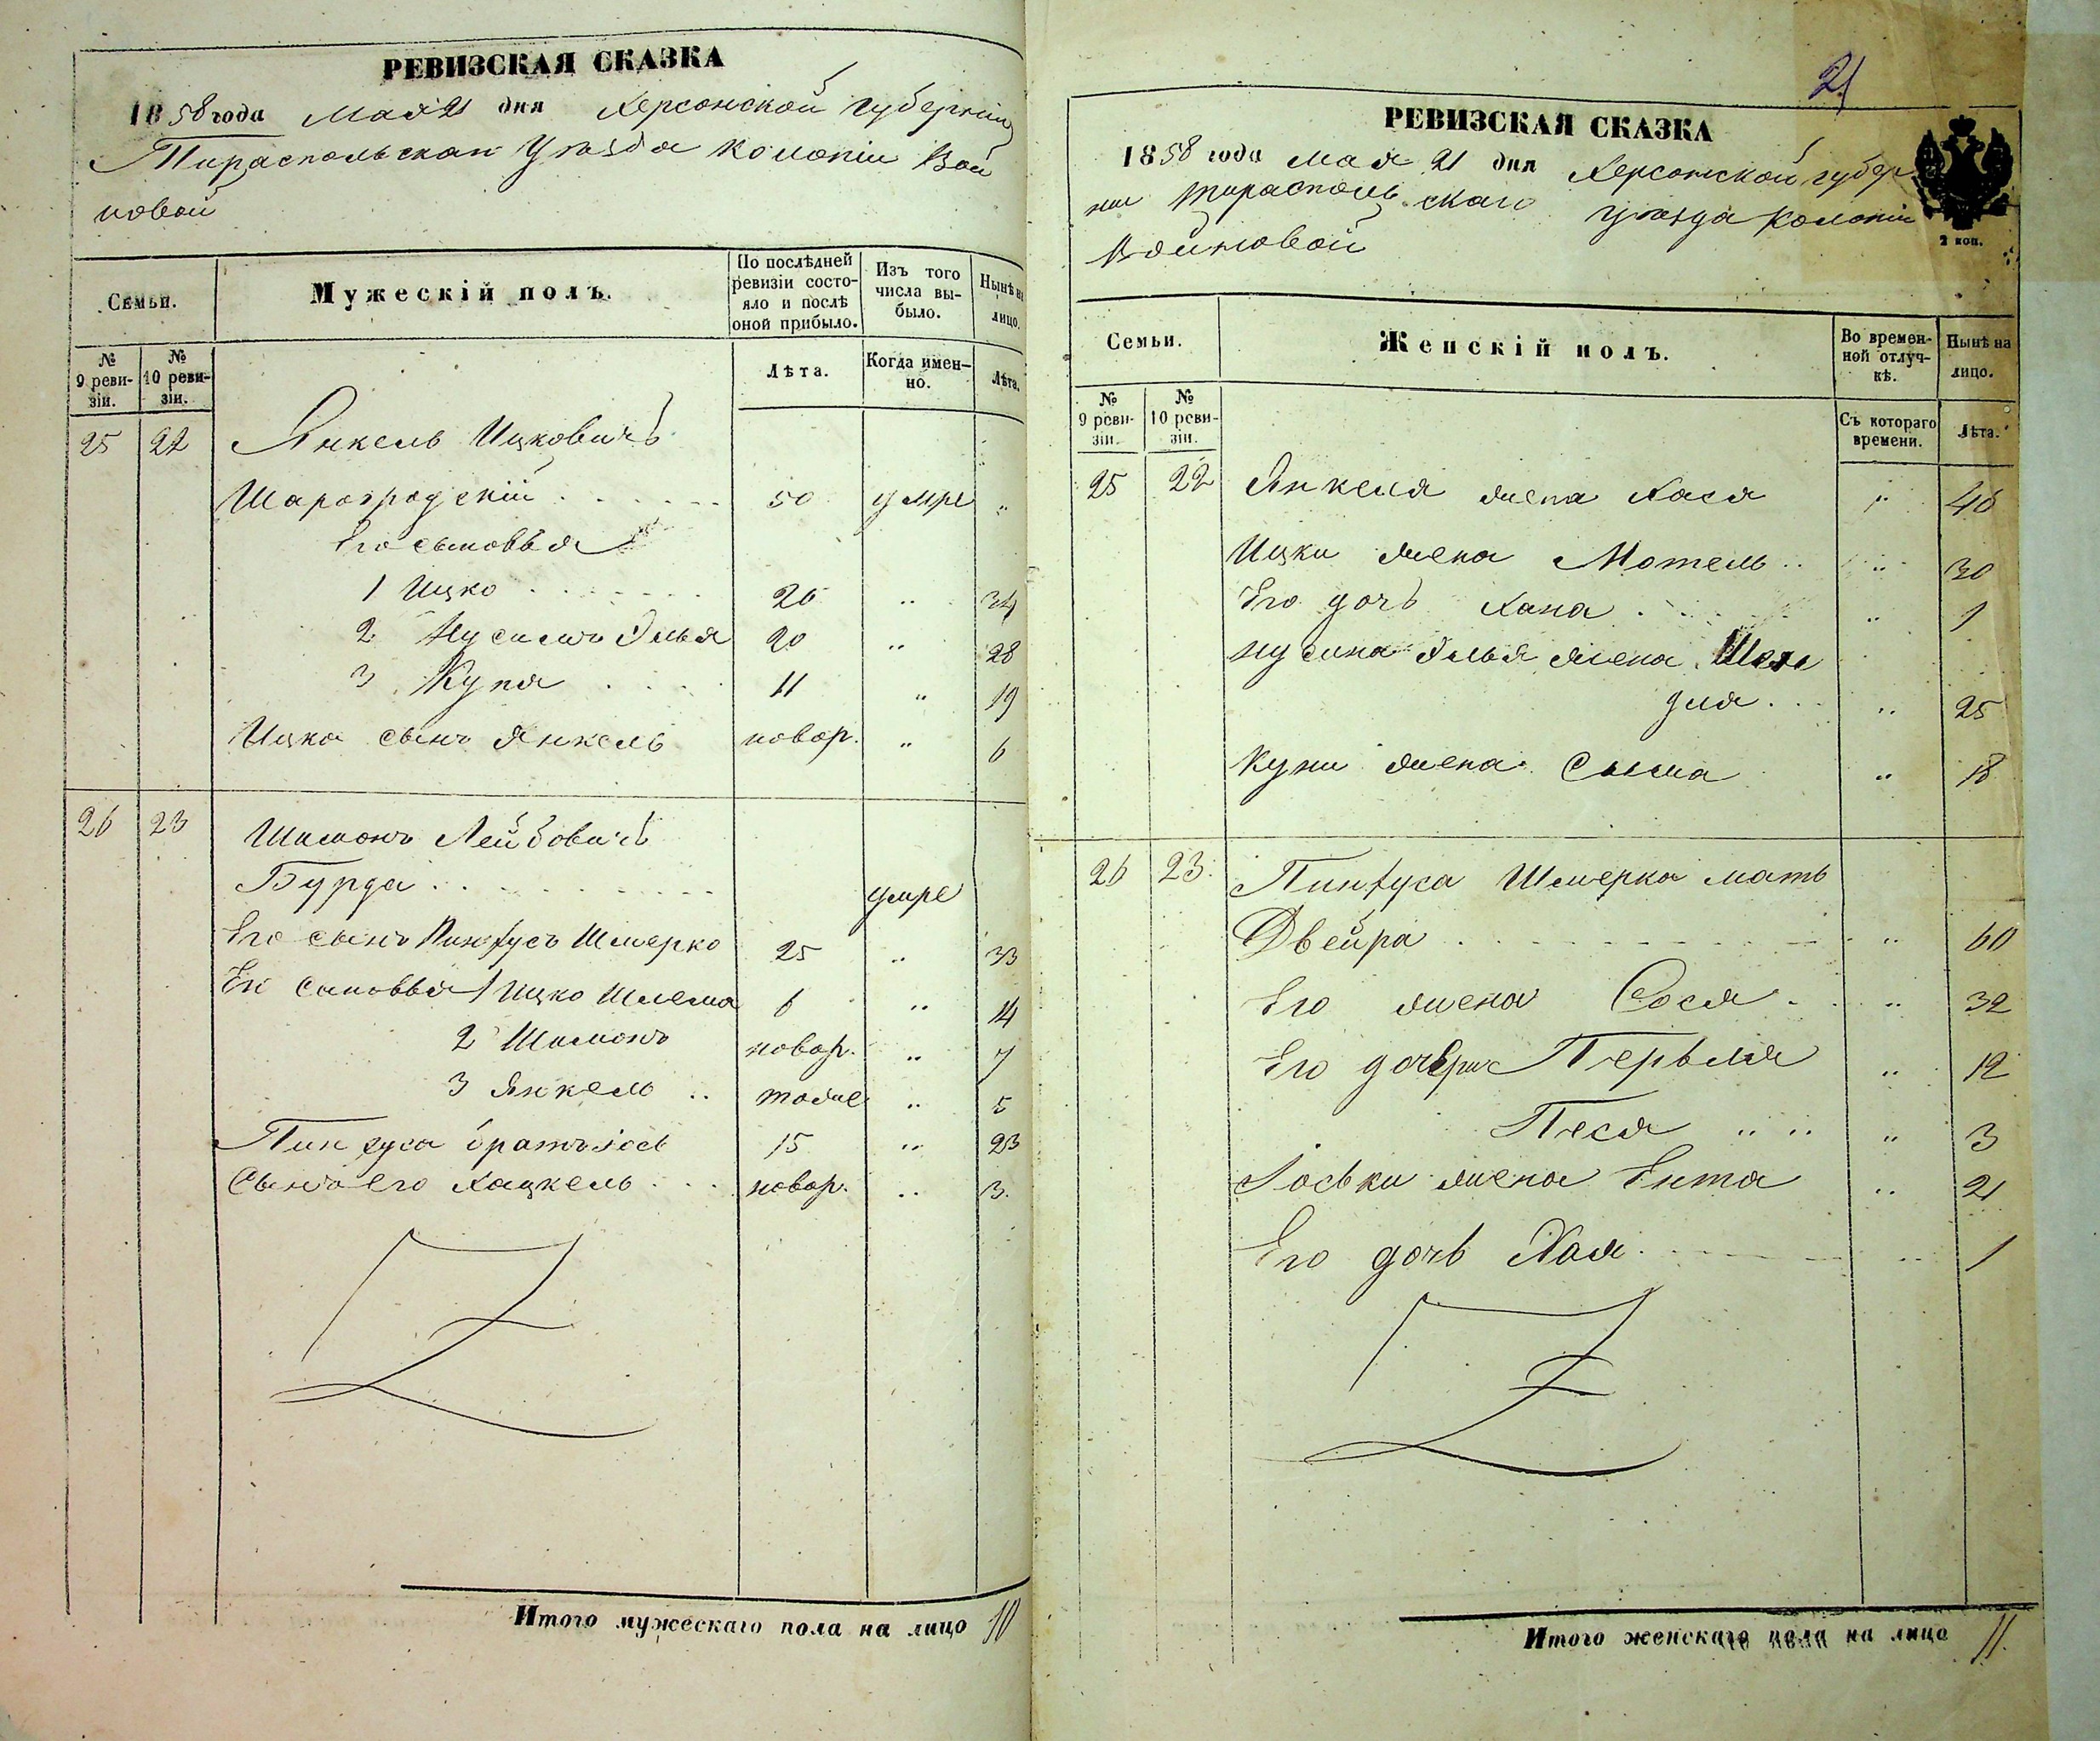 РЕВИЗСКАЯ СКАЗКА
1858 года Мая 21 дня Херсонской Губерніи
Тираспольскаго Уѣзда Колоніи Вой
новой
Семьи.
Мужескій полъ.
По послѣдней ревизіи состо-
яло и послѣ оной прибыло.
Изъ того числа вы-
было.
Нынѣ на лицо.
№ 9 реви-
зіи.
№ 10 реви-
зіи.
Лѣта.
Когда имен-
но.
Лѣта.
25 22 Янкель Ицковичъ
Шарогродскій 50 умре "
Его сыновья
1 Ицко 26 " 34
2 Нусимъ Элья 20 " 28
3 Куня 11 " 19
Ицка сынъ Янкель новор. " 6
26 23 Шимонъ Лейбовичъ
Бурда умре
Его сынъ Пинхусъ Шмерко 25 " 33
Ег сыновья 1 Ицко Шлема 6 " 14
2 Шимонъ новор. " 7
3 Янкель тоже " 5
Пинхуса братъ Іось 15 " 23
Сынъ его Хацкель новор. " 3.
Итого мужескаго пола на лицо 10
21
РЕВИЗСКАЯ СКАЗКА
1858 года мая 21 дня Херсонской губер
ніи Тираспольскаго уѣзда Колоніи
Войновой
2 коп.
Семьи.
Женскій полъ.
Во времен-
ной отлуч-
кѣ.
Нынѣ на лицо.
№ 9 реви-
зіи.
№ 10 реви-
зіи.
Съ котораго времени.
Лѣта.
25 22 Янкеля жена Хася " 48
Ицки жена Мотель " 30
Его дочь Хана " 1
Нусина Элья жена
для " 25
Куни жена Сыма " 18
26 23. Пинхуса Шмерка мать
Двейра " 60
Его жена Сося " 32
Его дочери Перьля " 12
Песя " 3
Іоськи жена Ента " 21
Его дочь Хая " 1
Итого женскаго пола на лицо 11.